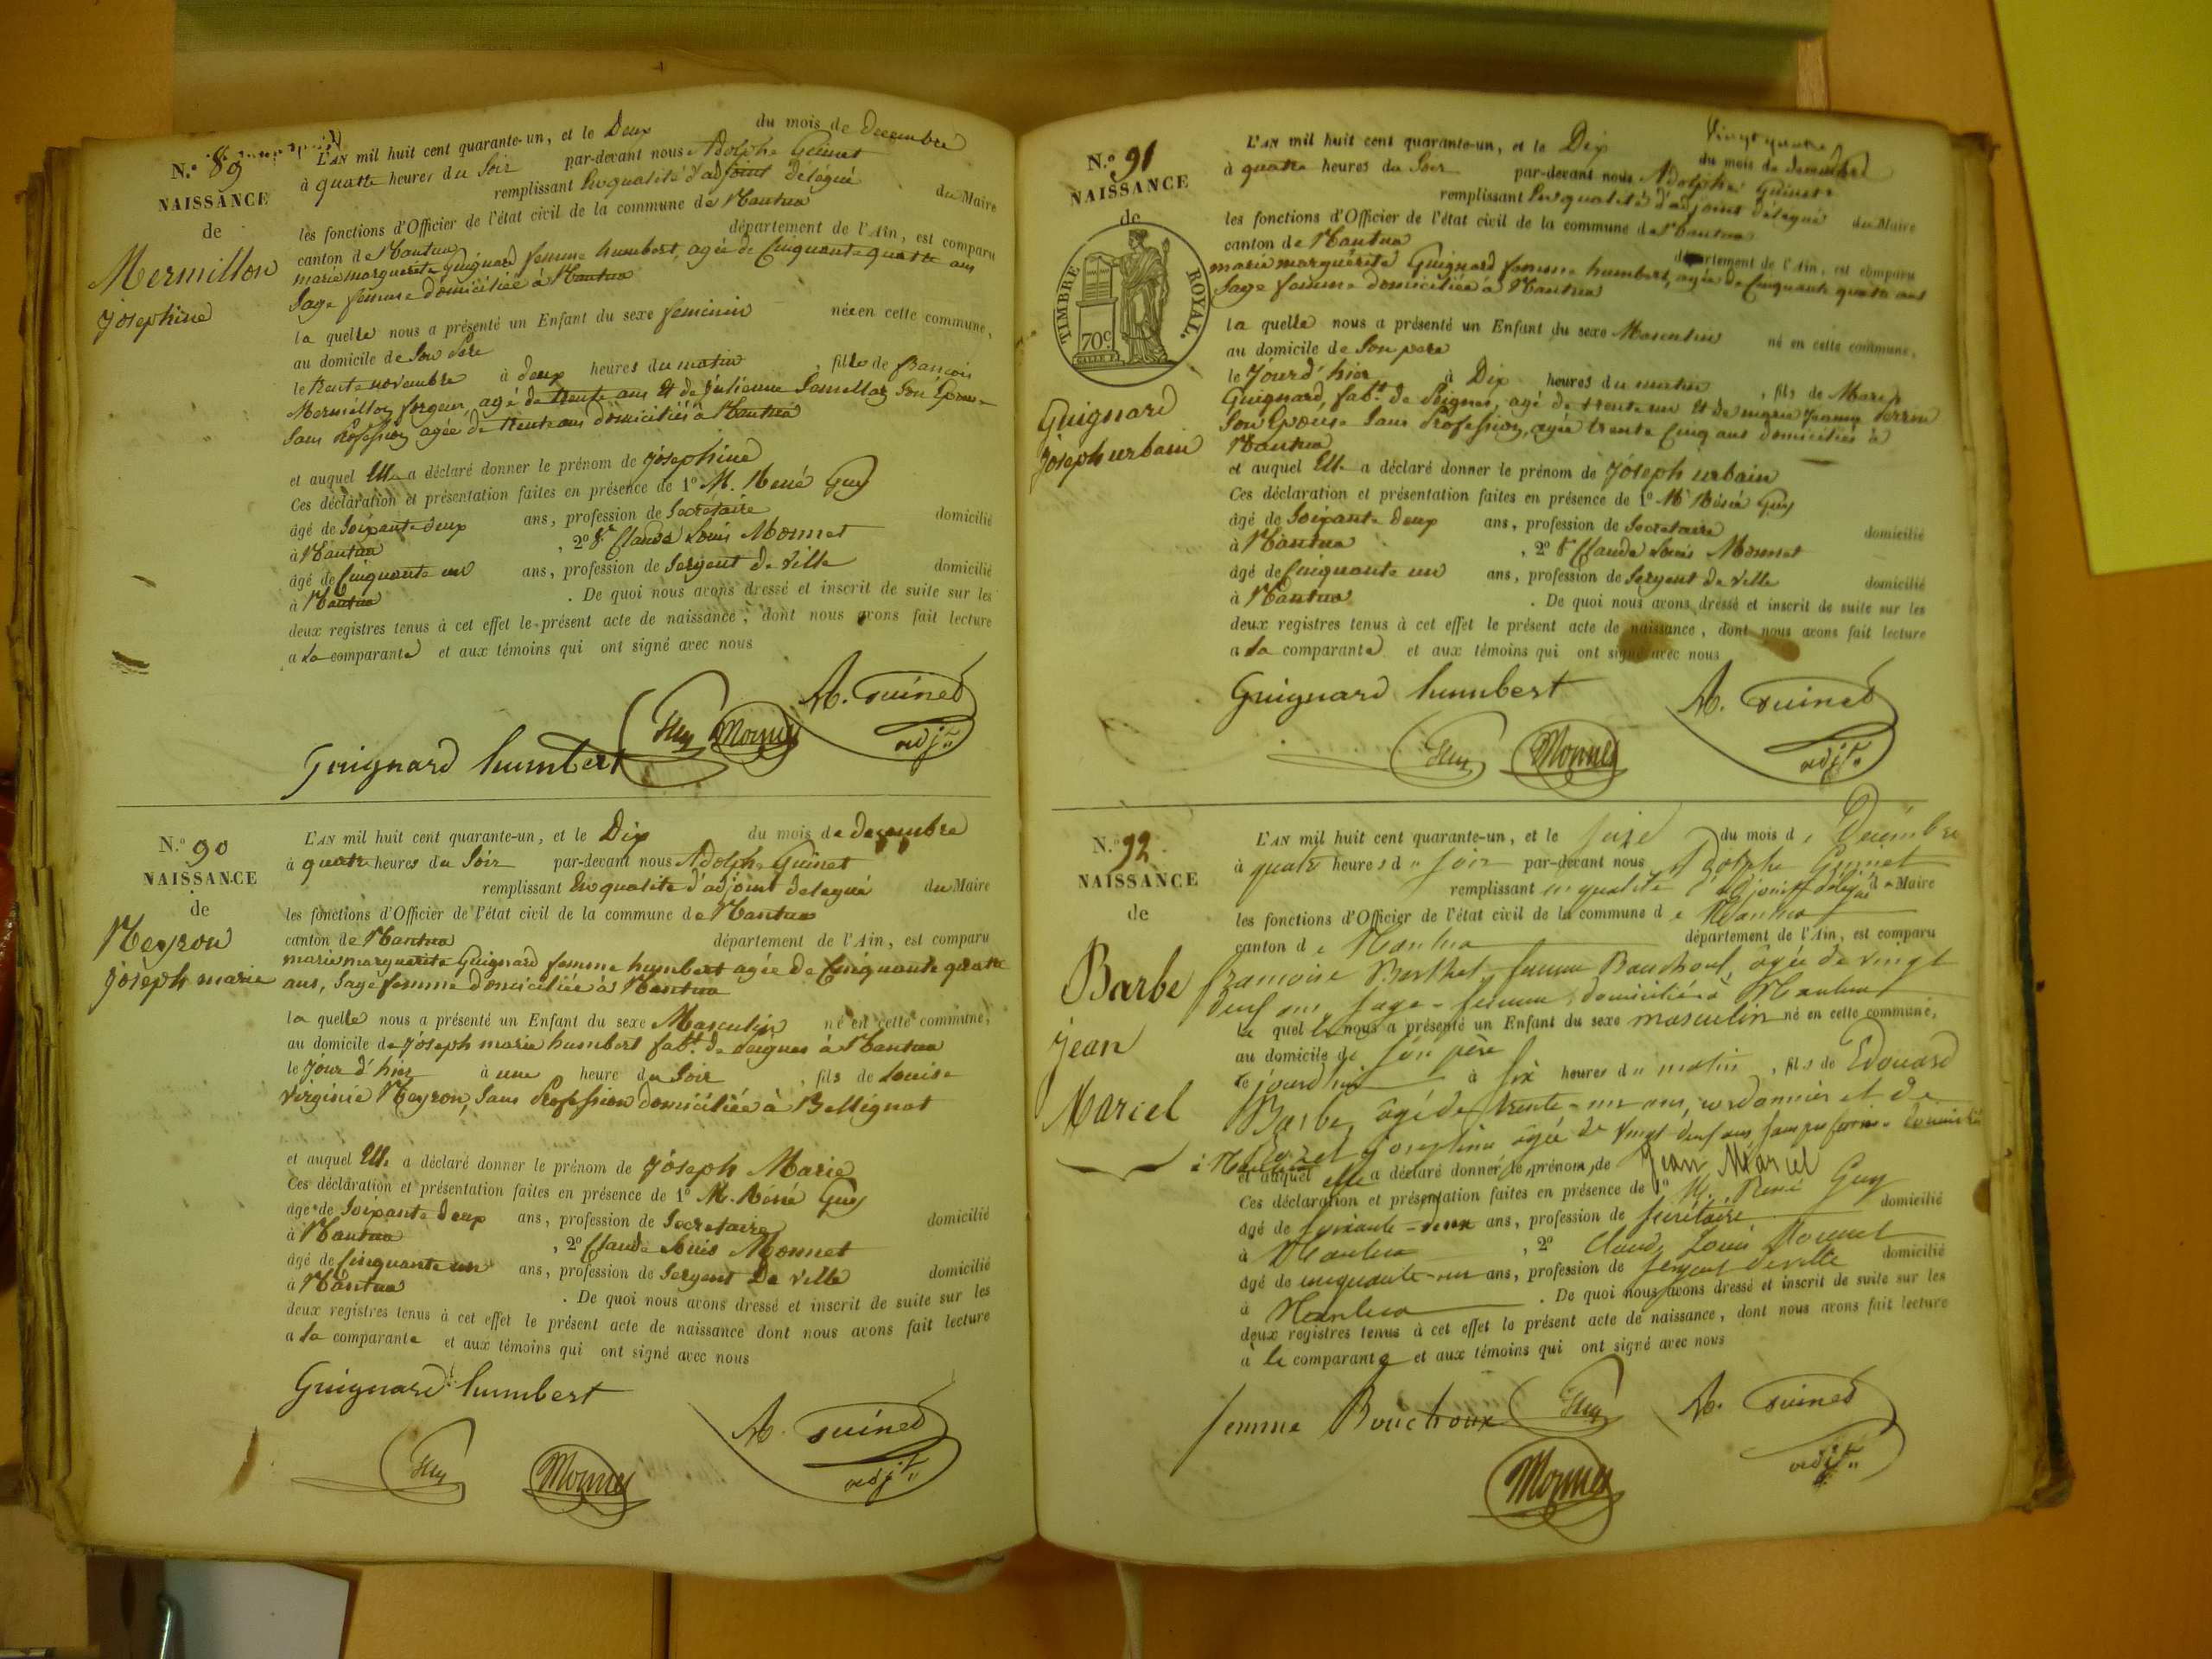 N.o 89
NAISSANCE
de
Mermillon
Josephine
L'AN mil huit cent quarante-un, et le Deux du mois de Decembre
à quatre heures du Soir par-devant nous Adolphe Guinet
remplissant En qualité d'adjoint delegué du Maire
les fonctions d'Officier de l'état civil de la commune de Nantua
canton de Nantua département de l'Ain, est comparu
marie marguerite Guignard femme humbert, agée de Cinquante quatre ans
Sage femme domiciliée à Nantua
la quelle nous a présenté un Enfant du sexe feminin née en cette commune,
au domicile de Son Père
le trente novembre à deux heures du matin, fille de françois
Mermillon forgeur, agé de trente ans Et de julienne Son Epouse
Sans Profession agée de trente ans domiciliés à Nantua
et auquel Elle a déclaré donner le prénom de Josephine
Ces déclaration et présentation faites en présence de 1º M. René Guy
âgé de Soixante deux ans, profession de Secrétaire domicilié
à Nantua, 2º Sr Claude Louis Monnet
âgé de Cinquante un ans, profession de Sergent de Ville domicilié
à Nantua. De quoi nous avons dressé et inscrit de suite sur les
deux registres tenus à cet effet le présent acte de naissance, dont nous avons fait lecture
a la comparante et aux témoins qui ont signé avec nous
Guignard humbert Guy Monnet A. Guinet
adjt.
N.o 90
NAISSANCE
de
Neyron
joseph marie
L'AN mil huit cent quarante-un, et le Dix du mois de decembre
à quatre heures du Soir par-devant nous Adolphe Guinet
remplissant En qualité d'adjoint delegué du Maire
les fonctions d'Officier de l'état civil de la commune de Nantua
canton de Nantua département de l'Ain, est comparu
marie marguerite Guignard femme humbert agée de Cinquante quatre
ans, Sage femme domiciliée à Nantua
la quelle nous a présenté un Enfant du sexe Masculin né en cette commune,
au domicile de Joseph marie humbert fabt. de peignes à Nantua
le Jour d'hier à une heure du Soir, fils de Louise
Virginie Neyron, Sans Profession domiciliée à Bellignat
et auquel Elle a déclaré donner le prénom de Joseph Marie
Ces déclaration et présentation faites en présence de 1º M. Réné Guy
âgé de Soixante deux ans, profession de Secretaire domicilié
à Nantua, 2º Claude Louis Monnet
âgé de Cinquante un ans, profession de Sergent De Ville domicilié
à Nantua. De quoi nous avons dressé et inscrit de suite sur les
deux registres tenus à cet effet le présent acte de naissance dont nous avons fait lecture
a la comparante et aux témoins qui ont signé avec nous
Guignard humbert
A. Guinet
Guy Monnet adjt.
N.o 91
NAISSANCE
de
TIMBRE ROYAL.
70c
Guignard
Joseph urbain
L'AN mil huit cent quarante-un, et le Dix du mois de decembre
à quatre heures du Soir par-devant nous Adolphe Guinet
remplissant En qualité d'adjoint délegué du Maire
les fonctions d'Officier de l'état civil de la commune de Nantua
canton de Nantua département de l'Ain, est comparu
marie marguérite Guignard femme humbert, agée de Cinquante quatre ans
Sage femme domiciliée à Nantua
la quelle nous a présenté un Enfant du sexe Masculin né en cette commune,
au domicile de Son pere
le Jour d'hier à Dix heures du matin, fils de Marie
Guignard, fabt. de Peignes, agé de trente un Et de marie Jeanne Perrin
Son Epouse Sans Profession, agée trente Cinq ans domiciliés à
Nantua
et auquel Elle a déclaré donner le prénom de Jóseph urbain
Ces déclaration et présentation faites en présence de 1º Mr Réné Guy
âgé de Soixante deux ans, profession de Secretaire domicilié
à Nantua, 2º Sr Claude Louis Monnet
âgé de Cinquante un ans, profession de Sergent de Ville domicilié
à Nantua. De quoi nous avons dressé et inscrit de suite sur les
deux registres tenus à cet effet le présent acte de naissance, dont nous avons fait lecture
a la comparante et aux témoins qui ont signé avec nous
Guignard humbert A. Guinet
Guy Monnet adjt.
N.o 92
NAISSANCE
de
Barbe
Jean
Marcel
L'AN mil huit cent quarante-un, et le seize du mois de Décembre
à quatre heures du soir par-devant nous Adolphe Guinet
remplissant en qualité d'adjoint délégué du Maire
les fonctions d'Officier de l'état civil de la commune de Nantua
canton de Nantua département de l'Ain, est comparu
françoise Berthet, femme Bouchoux, âgée de vingt
neuf ans, sage-femme, domiciliée à Nantua
la quelle nous a présenté un Enfant du sexe masculin né en cette commune,
au domicile de son père
le jourd'hui à six heures du matin, fils de Edouard
Barbe, âgé de trente-un ans, cordonnier et de
josephine âgée de vingt-neuf ans sans profession domiciliés
à Nantua
et auquel elle a déclaré donner le prénom de Jean Marcel
Ces déclaration et présentation faites en présence de 1º M. René Guy
âgé de soixante-deux ans, profession de secrétaire domicilié
à Nantua, 2º Claude Louis Monnet
âgé de cinquante-un ans, profession de sergent de ville domicilié
à Nantua. De quoi nous avons dressé et inscrit de suite sur les
deux registres tenus à cet effet le présent acte de naissance, dont nous avons fait lecture
à la comparante et aux témoins qui ont signé avec nous
femme Bouchoux Guy A. Guinet
Monnet adjt.